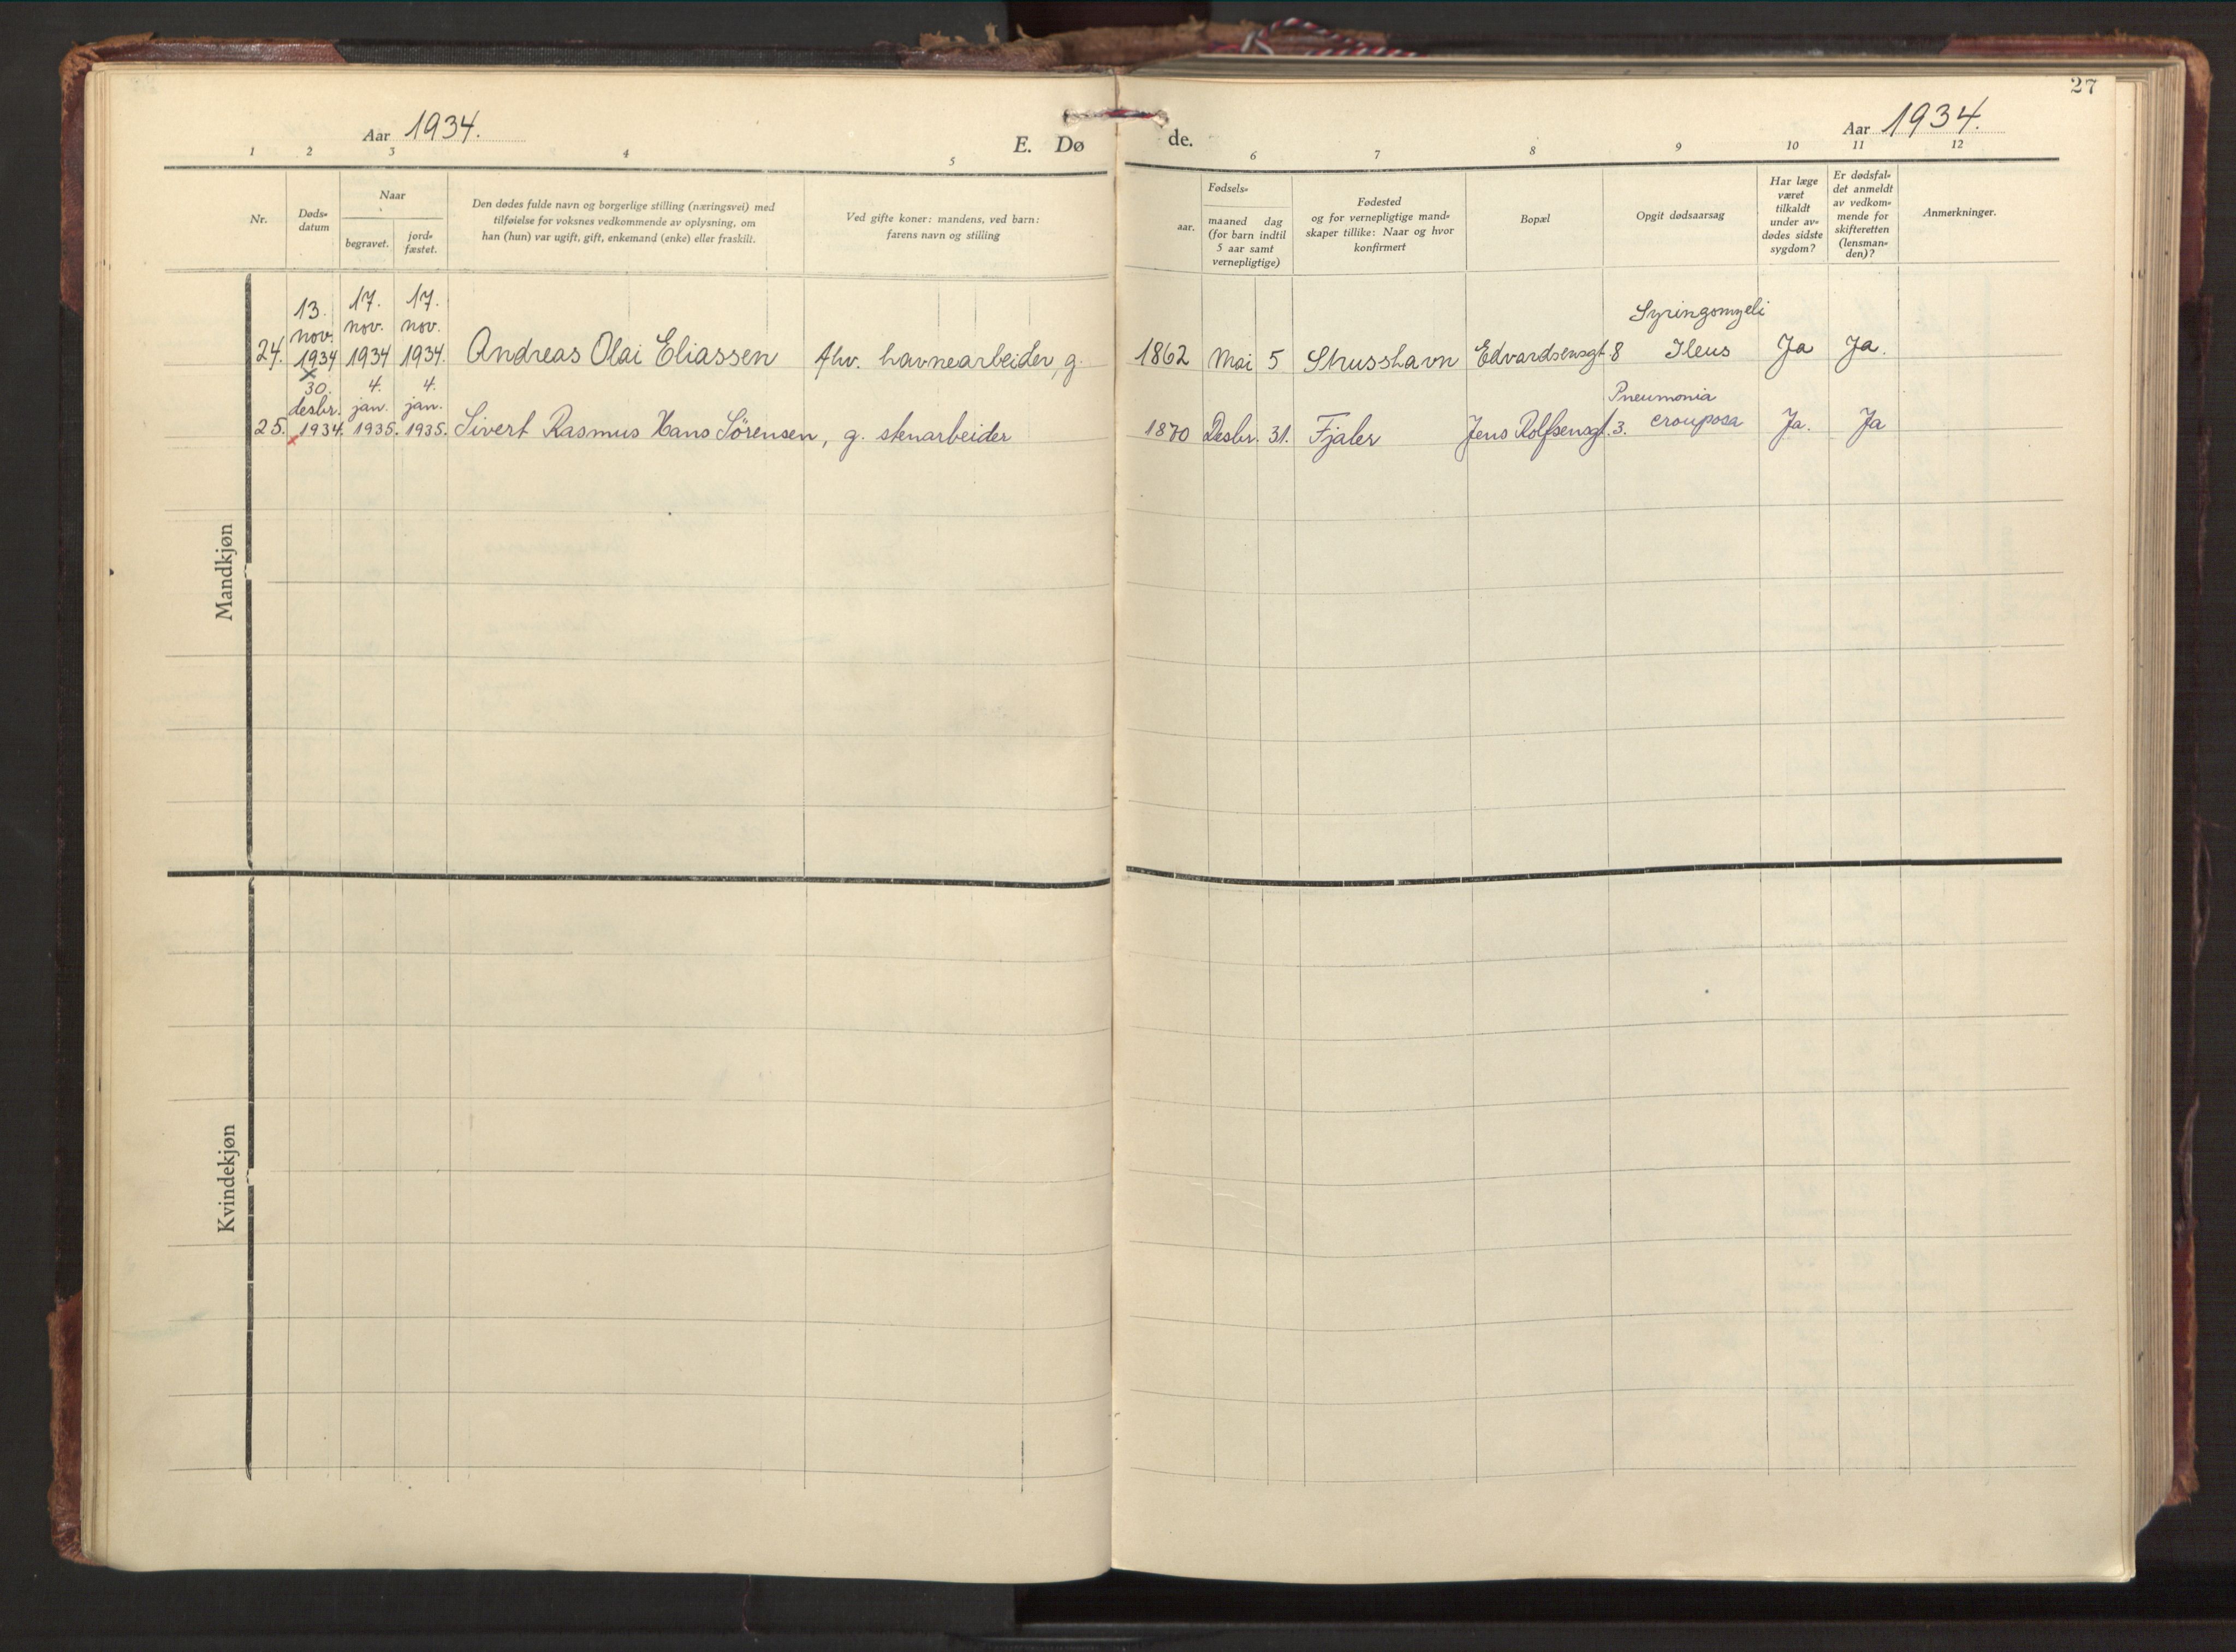 27
Aar 1934.
E. Dø
de.
Aar 1934.
1 2 3 4 5 6 7 8 9 10 11 12
Nr.
Døds-
datum
Naar
begravet.
jord-
fæstet.
Den dødes fulde navn og borgerlige stilling (næringsvei) med
tilføielse for voksnes vedkommende av oplysning, om
han (hun) var ugift, gift, enkemand (enke) eller fraskilt.
Ved gifte koner: mandens, ved barn:
farens navn og stilling
Fødsels-
aar.
maaned dag
(for barn indtil
5 aar samt
vernepligtige)
Fødested
og for vernepligtige mand-
skaper tillike: Naar og hvor
konfirmert
Bopæl
Opgit dødsaarsag
Har læge
været
tilkaldt
under av-
dødes sidste
sygdom?
Er dødsfal-
det anmeldt
av vedkom-
mende for
skifteretten
(lensman-
den)?
Anmerkninger.
Mandkjøn
13. 17. 17. Syringomyeli
nov. nov. nov.
24. 1934 1934 1934. Andreas Olai Eliassen fhv. havnearbeider, g. 1862 Mai 5 Skusshavn Edvardsensgt. 8 Ileus Ja Ja.
x
30. 4. 4. Pneumonia
desbr. jan. jan.
25. x 1934. 1935. 1935. Sivert Rasmus Hans Sörensen, g. stenarbeider 1870 Desbr. 31. Fjaler Jens Rolfsensgt. 3. crouposa Ja. Ja
Kvindekjøn